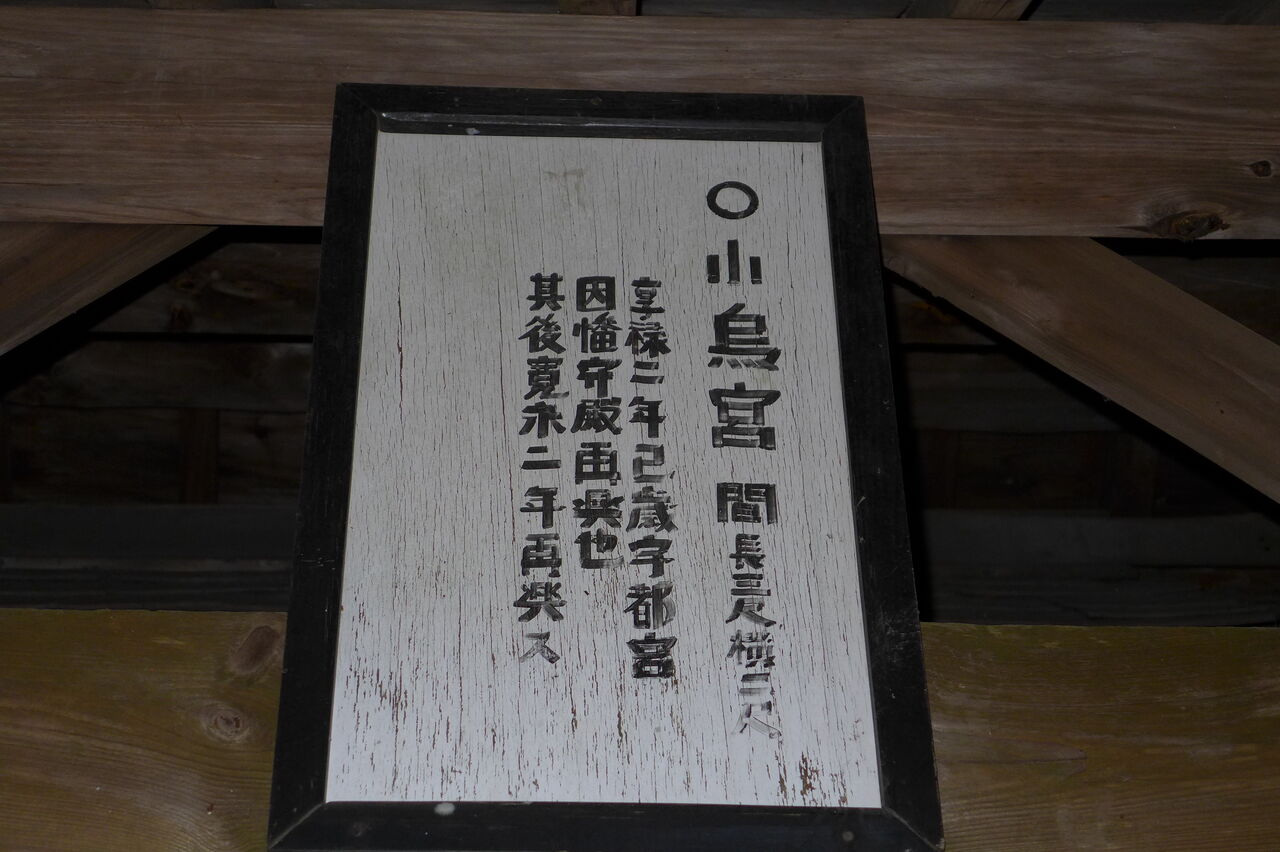 ○小烏宮 間長三尺横二尺
享禄二年己歳宇都宮
因幡守殿再興也
其後寛永二年再興ス